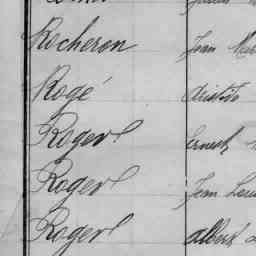 Rocheron Jean Mar
Rogé Aristide
Roger Ernest
Roger Jean Loui
Roger Albert